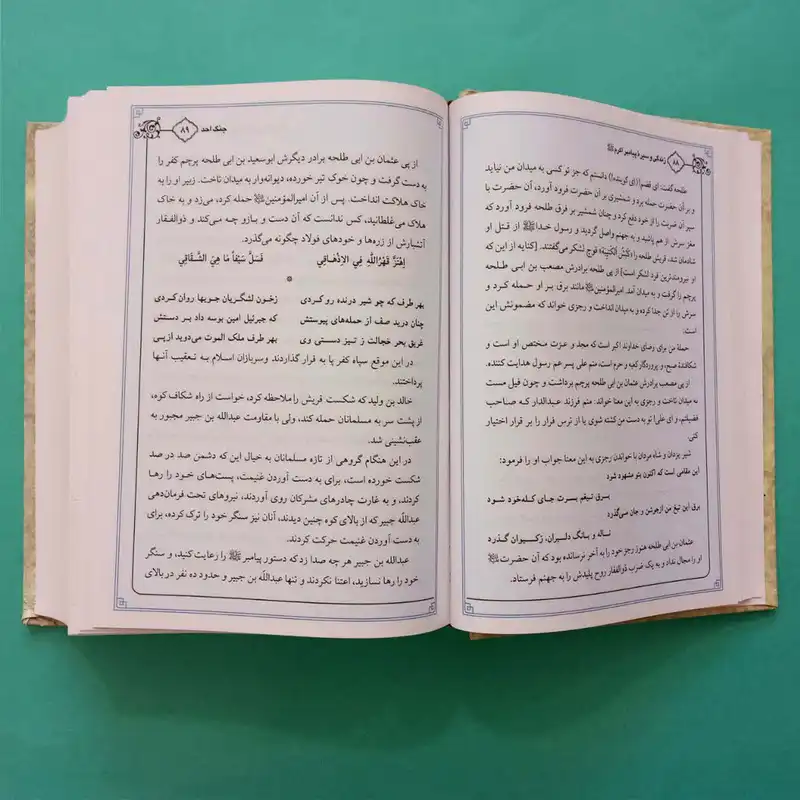 ۸۸ زندگی و سیره پیامبر اکرم ﷺ
طلحه گفت: ای قضم ((ای کوبنده)) دانستم که جز تو کسی به میدان من نیاید
و بر آن حضرت حمله برد و شمشیری بر آن حضرت فرود آورد، آن حضرت با
سپر آن ضربت را از خود دفع کرد و چنان شمشیر بر فرق طلحه فرود آورد که
مغز سرش از هم پاشید و به جهنم واصل گردید و رسول خدا ﷺ از قتل او
شادمان شد. قریش طلحه را «کَبْشُ الْکَتیبَة» قوچ لشکر می‌گفتند. [کنایه از این که
او نیرومندترین فرد لشکر است] از پی طلحه برادرش مصعب بن ابی طلحه
پرچم را گرفت و به میدان آمد. امیرالمؤمنین مانند برق بر او حمله کرد و
سرش را از تن جدا کرده و به میدان انداخت و رجزی خواند که مضمونش این
است:
حملهٔ من برای رضای خداوند اکبر است که مجد و عزت مختص او است و
شکافندهٔ صبح، و پروردگار کعبه و حرم است، منم علی پسر عم رسول هدایت کننده.
از پی مصعب برادرش عثمان بن ابی طلحه پرچم برداشت و چون فیل مست
به میدان تاخت و رجزی به این معنا خواند: منم فرزند عبدالدار که صاحب
فضیلتم، و ای علی! تو به دست من کشته شوی یا از ترس فرار را بر قرار اختیار
کنی
شیر یزدان و شاه مردان با خواندن رجزی به این معنا جواب او را فرمود:
این مقامی است که اکنون بتو مشهود شود
برق تیغم بسرت جای کله‌خود شود
برق این تیغ من ازجوشن و جان می‌گذرد
ناله و بانگ دلیران، زکیوان گذرد
عثمان بن ابی طلحه هنوز رجز خود را به آخر نرسانده بود که آن حضرت
او را مجال نداد و به یک ضرب ذوالفقار روح پلیدش را به جهنم فرستاد.
جنگ احد ۸۹
از پی عثمان بن ابی طلحه برادر دیگرش ابوسعید بن ابی طلحه پرچم کفر را
به دست گرفت و چون خوک تیر خورده، دیوانه‌وار به میدان تاخت. زبیر او را به
خاک هلاکت انداخت. پس از آن امیرالمؤمنین حمله کرد، می‌زد و به خاک
هلاک می‌غلطانید، کس ندانست که آن دست و بازو چه می‌کند و ذوالفقار
آتشبارش از زره‌ها و خودهای فولاد چگونه می‌گذرد.
اِهْتَزَّ قَهْرُاللّهِ فِي الْاِذْهاقِي فَسَلَّ سَيْفاً مَا هِيَ الشَّقَاقِي
بهر طرف که چو شیر درنده رو کردی زخون لشگریان جویها روان کردی
چنان درید صف از حمله‌های پیوستش که جبرئیل امین بوسه داد بر دستش
غریق بحر خجالت ز تیز دستی وی بهر طرف ملک الموت می‌دوید ازپی
در این موقع سپاه کفر پا به فرار گذاردند. وسربازان اسلام به تعقیب آنها
پرداختند.
خالد بن ولید که شکست قریش را ملاحظه کرد، خواست از راه شکاف کوه،
از پشت سر به مسلمانان حمله کند، ولی با مقاومت عبدالله بن جبیر مجبور به
عقب‌نشینی شد.
در این هنگام گروهی از تازه مسلمانان به خیال این که دشمن صد در صد
شکست خورده است، برای به دست آوردن غنیمت، پست‌های خود را رها
کردند، و به غارت چادرهای مشرکان روی آوردند، نیروهای تحت فرمان‌دهی
عبدالله جبیر که از بالای کوه چنین دیدند، آنان نیز سنگر خود را ترک کرده، برای
به دست آوردن غنیمت حرکت کردند.
عبدالله بن جبیر هر چه صدا زد که دستور پیامبر ﷺ را رعایت کنید، و سنگر
خود را رها نسازید، اعتنا نکردند و تنها عبدالله بن جبیر و حدود ده نفر در بالای